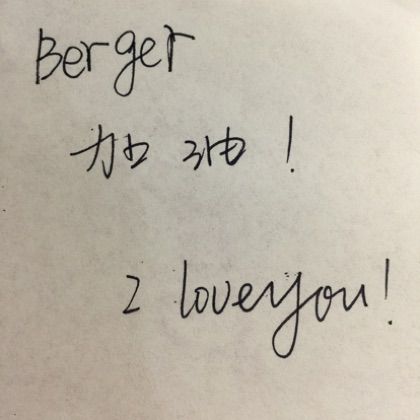 Berger
加油！
I love you!